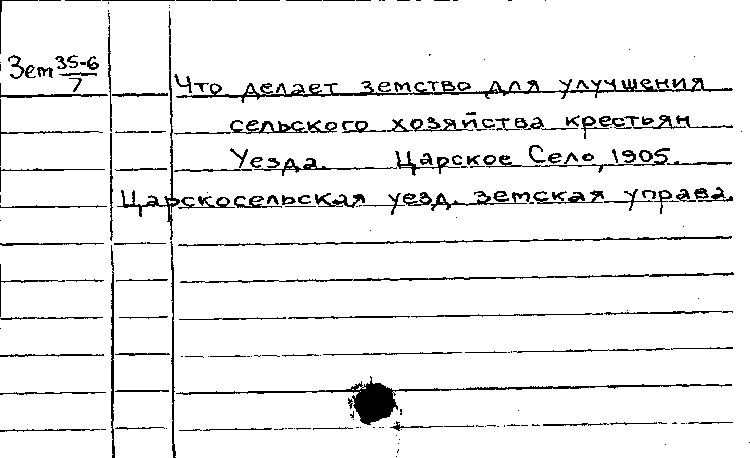 Зем 35-6/7
Что делает земство для улучшения
сельского хозяйства крестьян
Уезда. Царское Село, 1905.
Царскосельская уезд. земская управа.